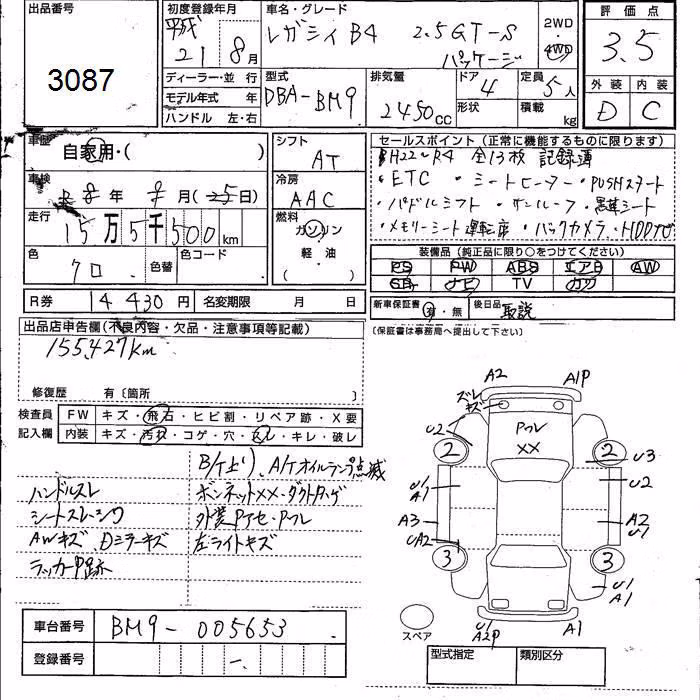 出品番号
3087
初度登録年月
平成
21 8 月
車名・グレード
レガシィ B4 2.5GT-S
パッケージ
2WD
・
4WD
評価点
3.5
外装 内装
D C
ディーラー・並行
モデル年式 年
ハンドル 左・右
型式
DBA-BM9
排気量
2450cc
ドア 4
形状
定員 5人
積載 kg
車歴
自家用・( )
車検
年 月(25日)
走行
15万5千500km
色
クロ
色替
色コード
シフト
AT
冷房
AAC
燃料
ガソリン
軽油
( )
セールスポイント(正常に機能するものに限ります)
・H22〜R4 全13枚 記録簿
・ETC ・シートヒーター ・PUSHスタート
・パドルシフト ・サンルーフ ・黒革シート
・メモリーシート運転席 ・バックカメラ・HDDナビ
装備品(純正品に限り○をつけてください)
PS PW ABS エアB AW
SR ナビ TV カワ
R券 14,430円 名変期限 月 日
新車保証書 有・無 後日品 取説
(保証書は事務局へ提出して下さい)
出品店申告欄(不良内容・欠品・注意事項等記載)
155,427km
修復歴 有〔箇所
検査員
記入欄
FW キズ・飛石・ヒビ割・リペア跡・X要
内装 キズ・汚れ・コゲ・穴・スレ・キレ・破レ
B/T上り、A/Tオイルランプ点滅
ハンドルスレ
ボンネットXX・ダクトカゲ
シートスレ・シワ
外装Pアセ・Pフレ
AWキズ、Dミラーキズ
左ライトキズ
ラッカーP跡
車台番号 BM9-005653
登録番号 -
A2 A1P
ズレ
キズ
Pフレ
XX
U2
2 2
U3
U1
A1
U2
A3
A2
U1
UA2
3 3
U1
A1
U1
A2P
A1
スペア
型式指定 類別区分